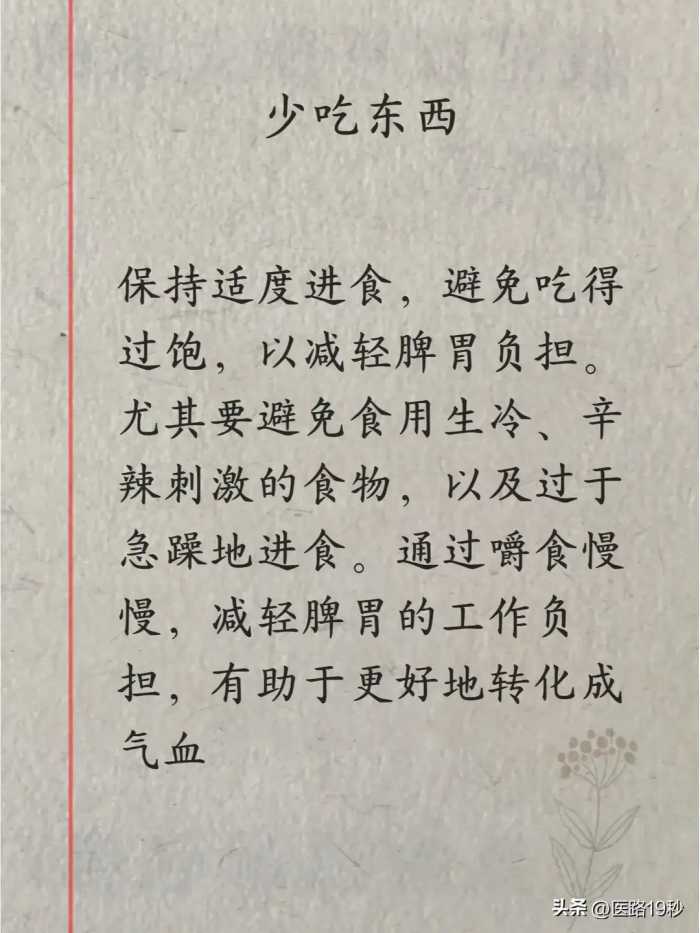 少吃东西
保持适度进食，避免吃得
过饱，以减轻脾胃负担。
尤其要避免食用生冷、辛
辣刺激的食物，以及过于
急躁地进食。通过嚼食慢
慢，减轻脾胃的工作负
担，有助于更好地转化成
气血
头条 @医路19秒